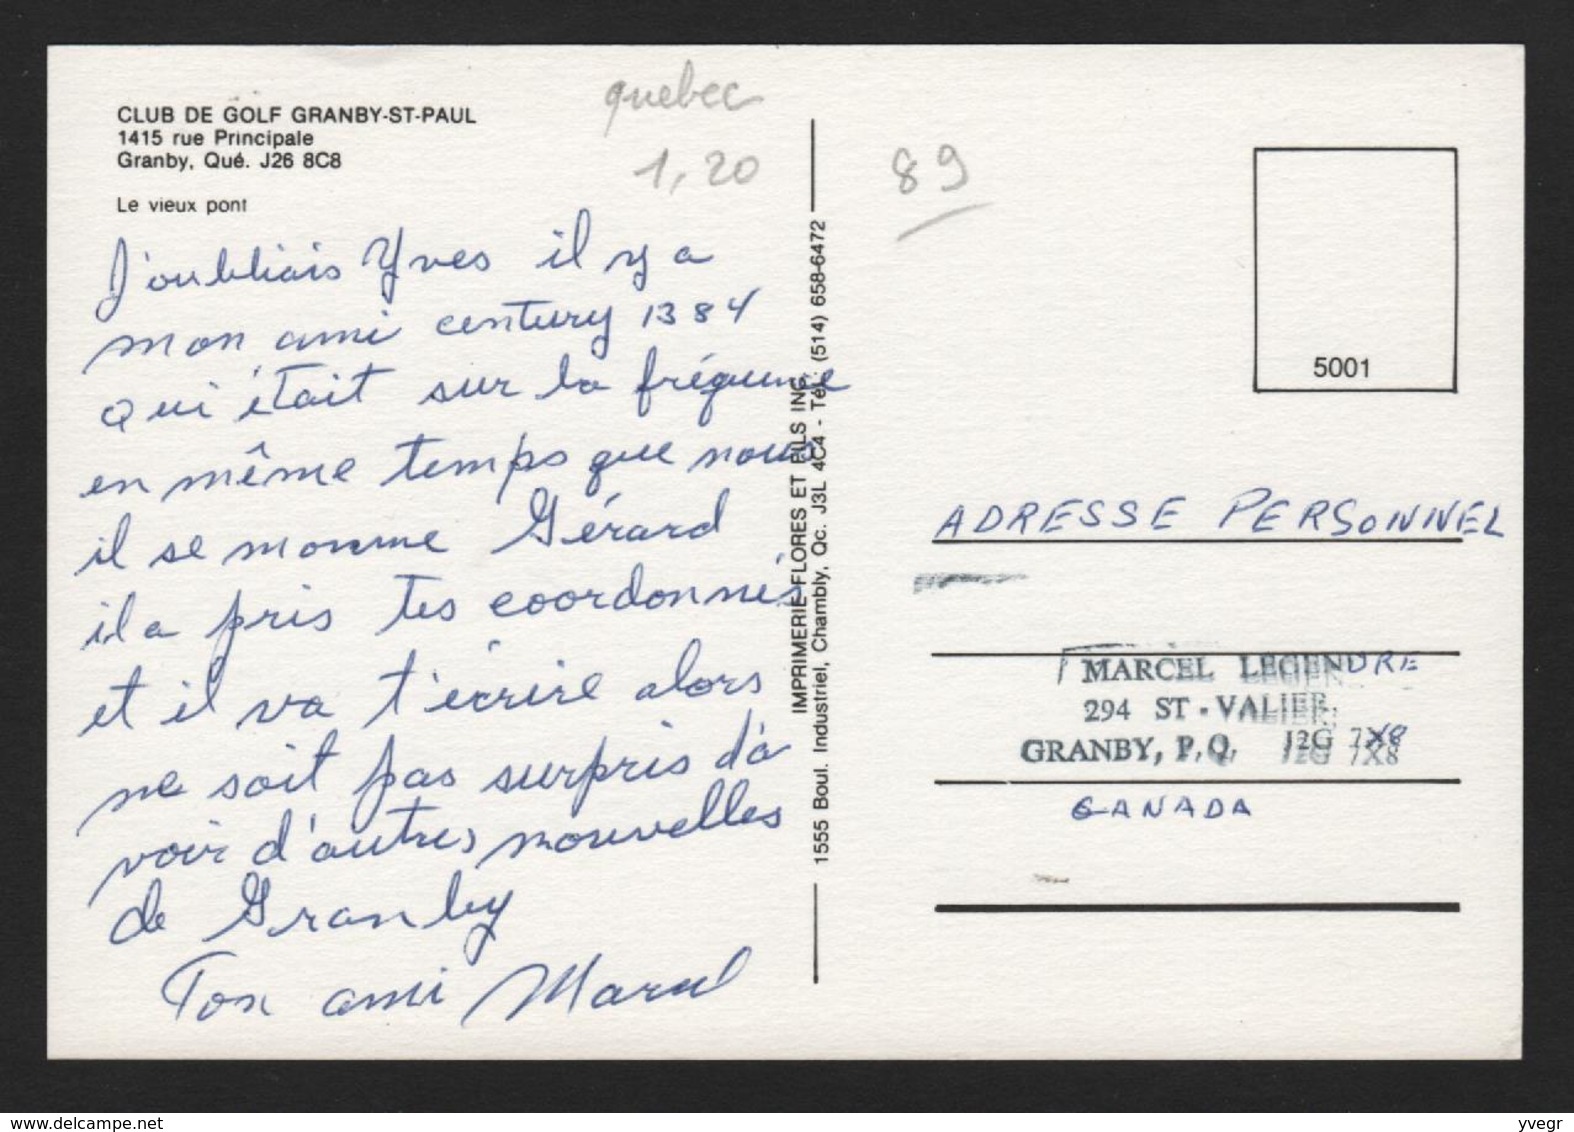 quebec
1,20
89
CLUB DE GOLF GRANBY-ST-PAUL
1415 rue Principale
Granby, Qué. J26 8C8
Le vieux pont
J'oubliais Yves il y a
mon ami century 1384
qui était sur la fréquence
en même temps que nous
il se nomme Gérard
il a pris tes coordonnés
et il va t'écrire alors
ne soit pas surpris d'a
voir d'autres nouvelles
de Granby
Ton ami Marcel
IMPRIMERIE FLORES ET FILS INC.
1555 Boul. Industriel, Chambly, Qc. J3L 4C4 - Tél.: (514) 658-6472
5001
ADRESSE PERSONNEL
MARCEL LEGENDRE
294 ST-VALIER
GRANBY, P.Q. J2G 7X8
CANADA
www.delcampe.net
yvegr